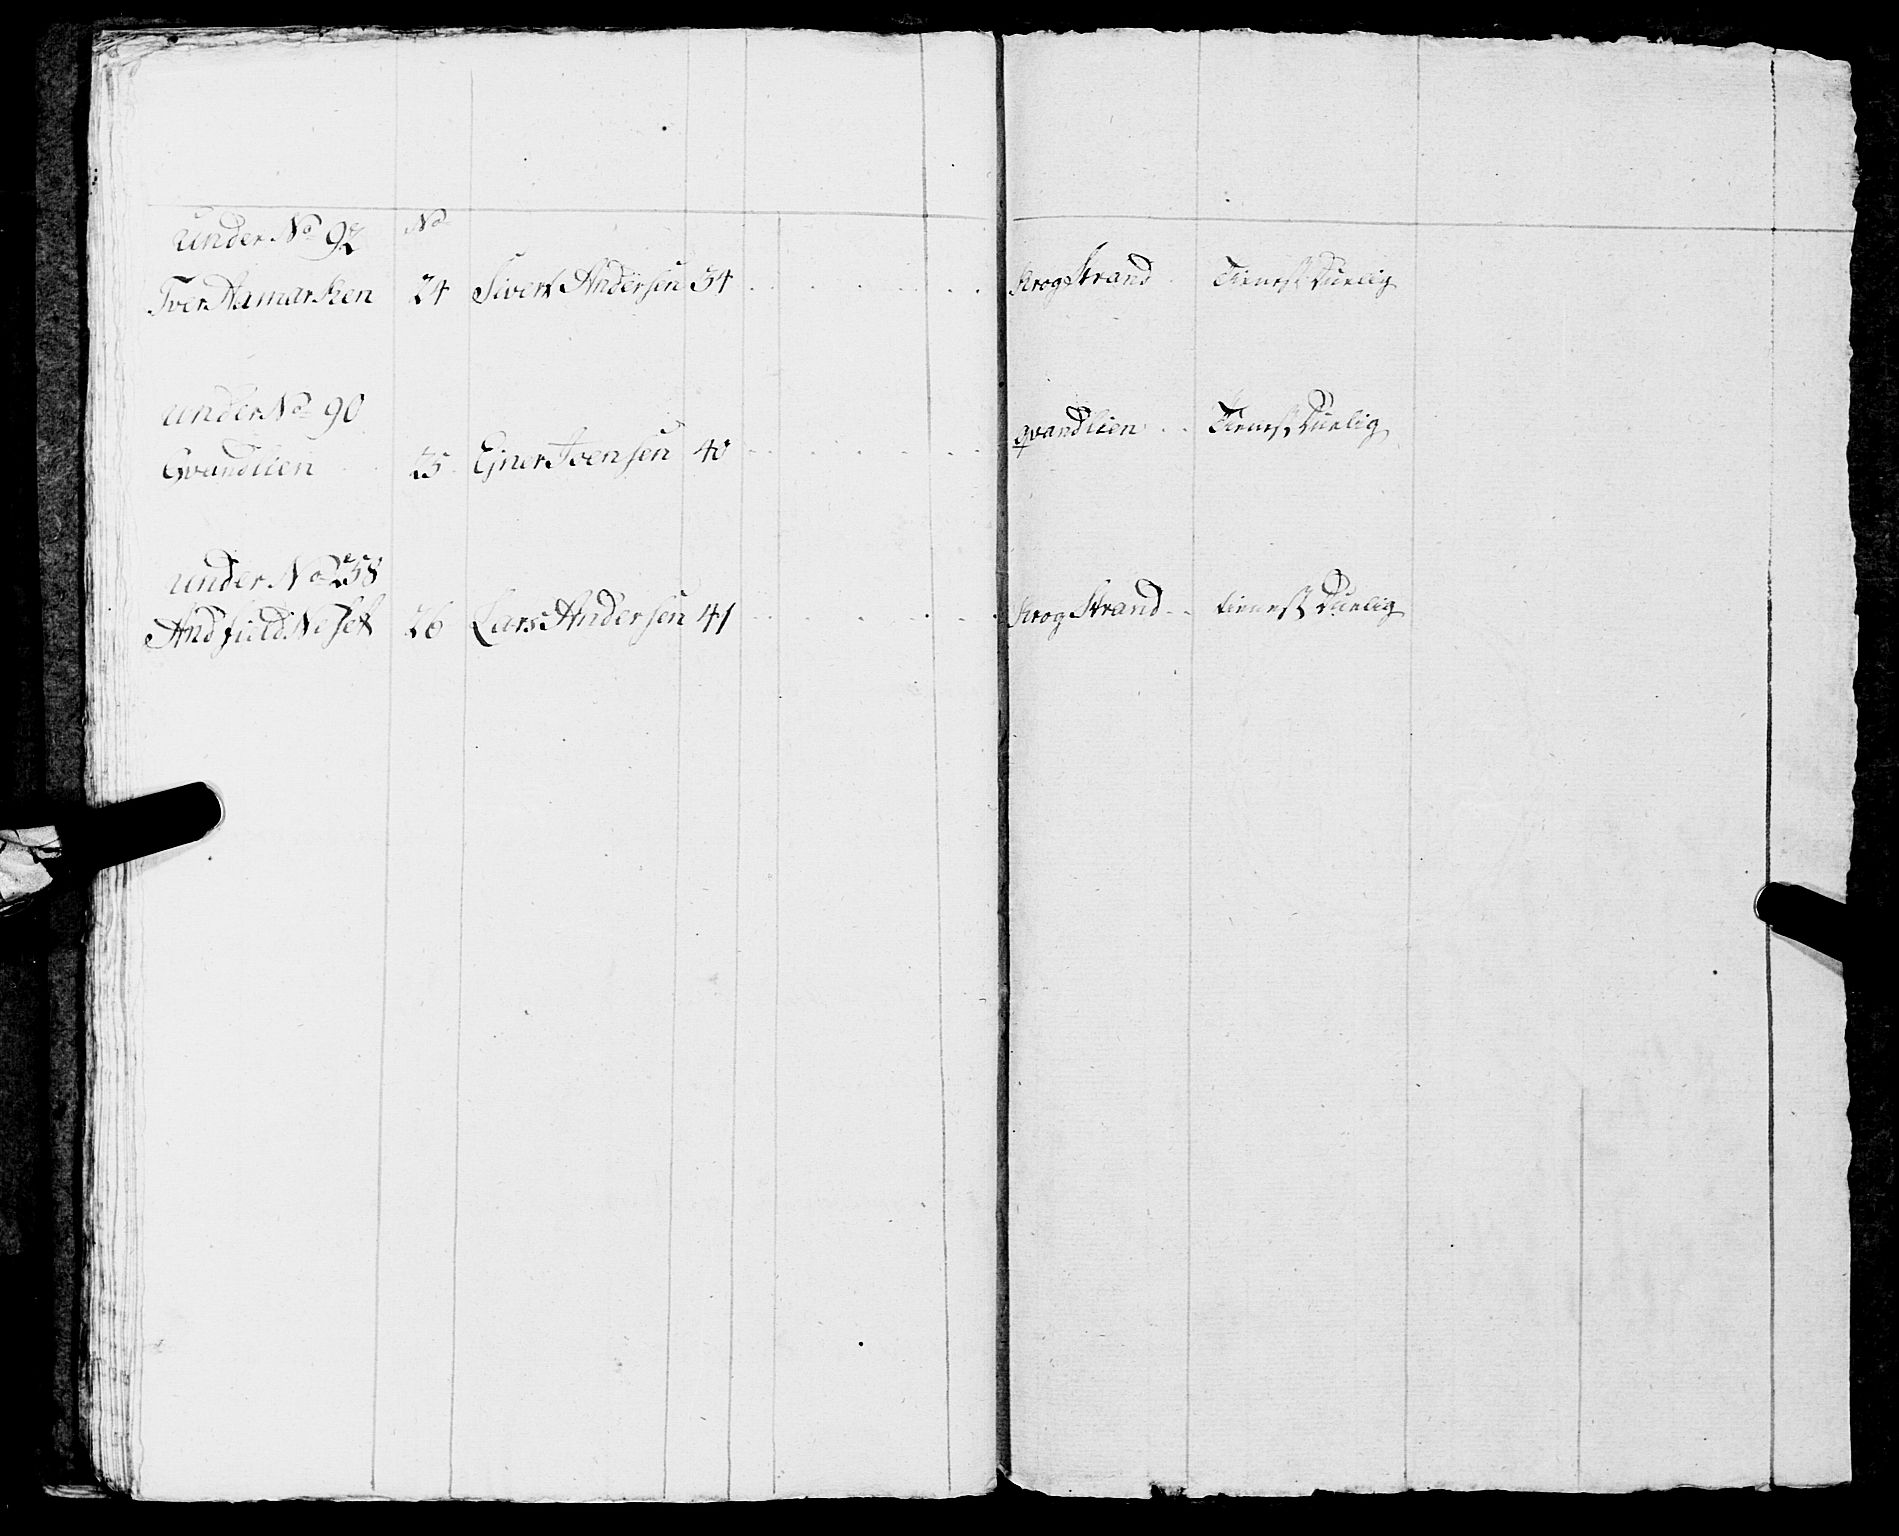 under No 92 No
Iver Hamarsken 24 Sivert Andersen 34 Krog Strand Tienest Duelig
under No 90
Qvandlien 25 Ejner Ivensen 40 qvandlien Tienest Duelig
under No 258
Andfield Neset 26 Lars Andersen 41 Krog Strand tienest Duelig